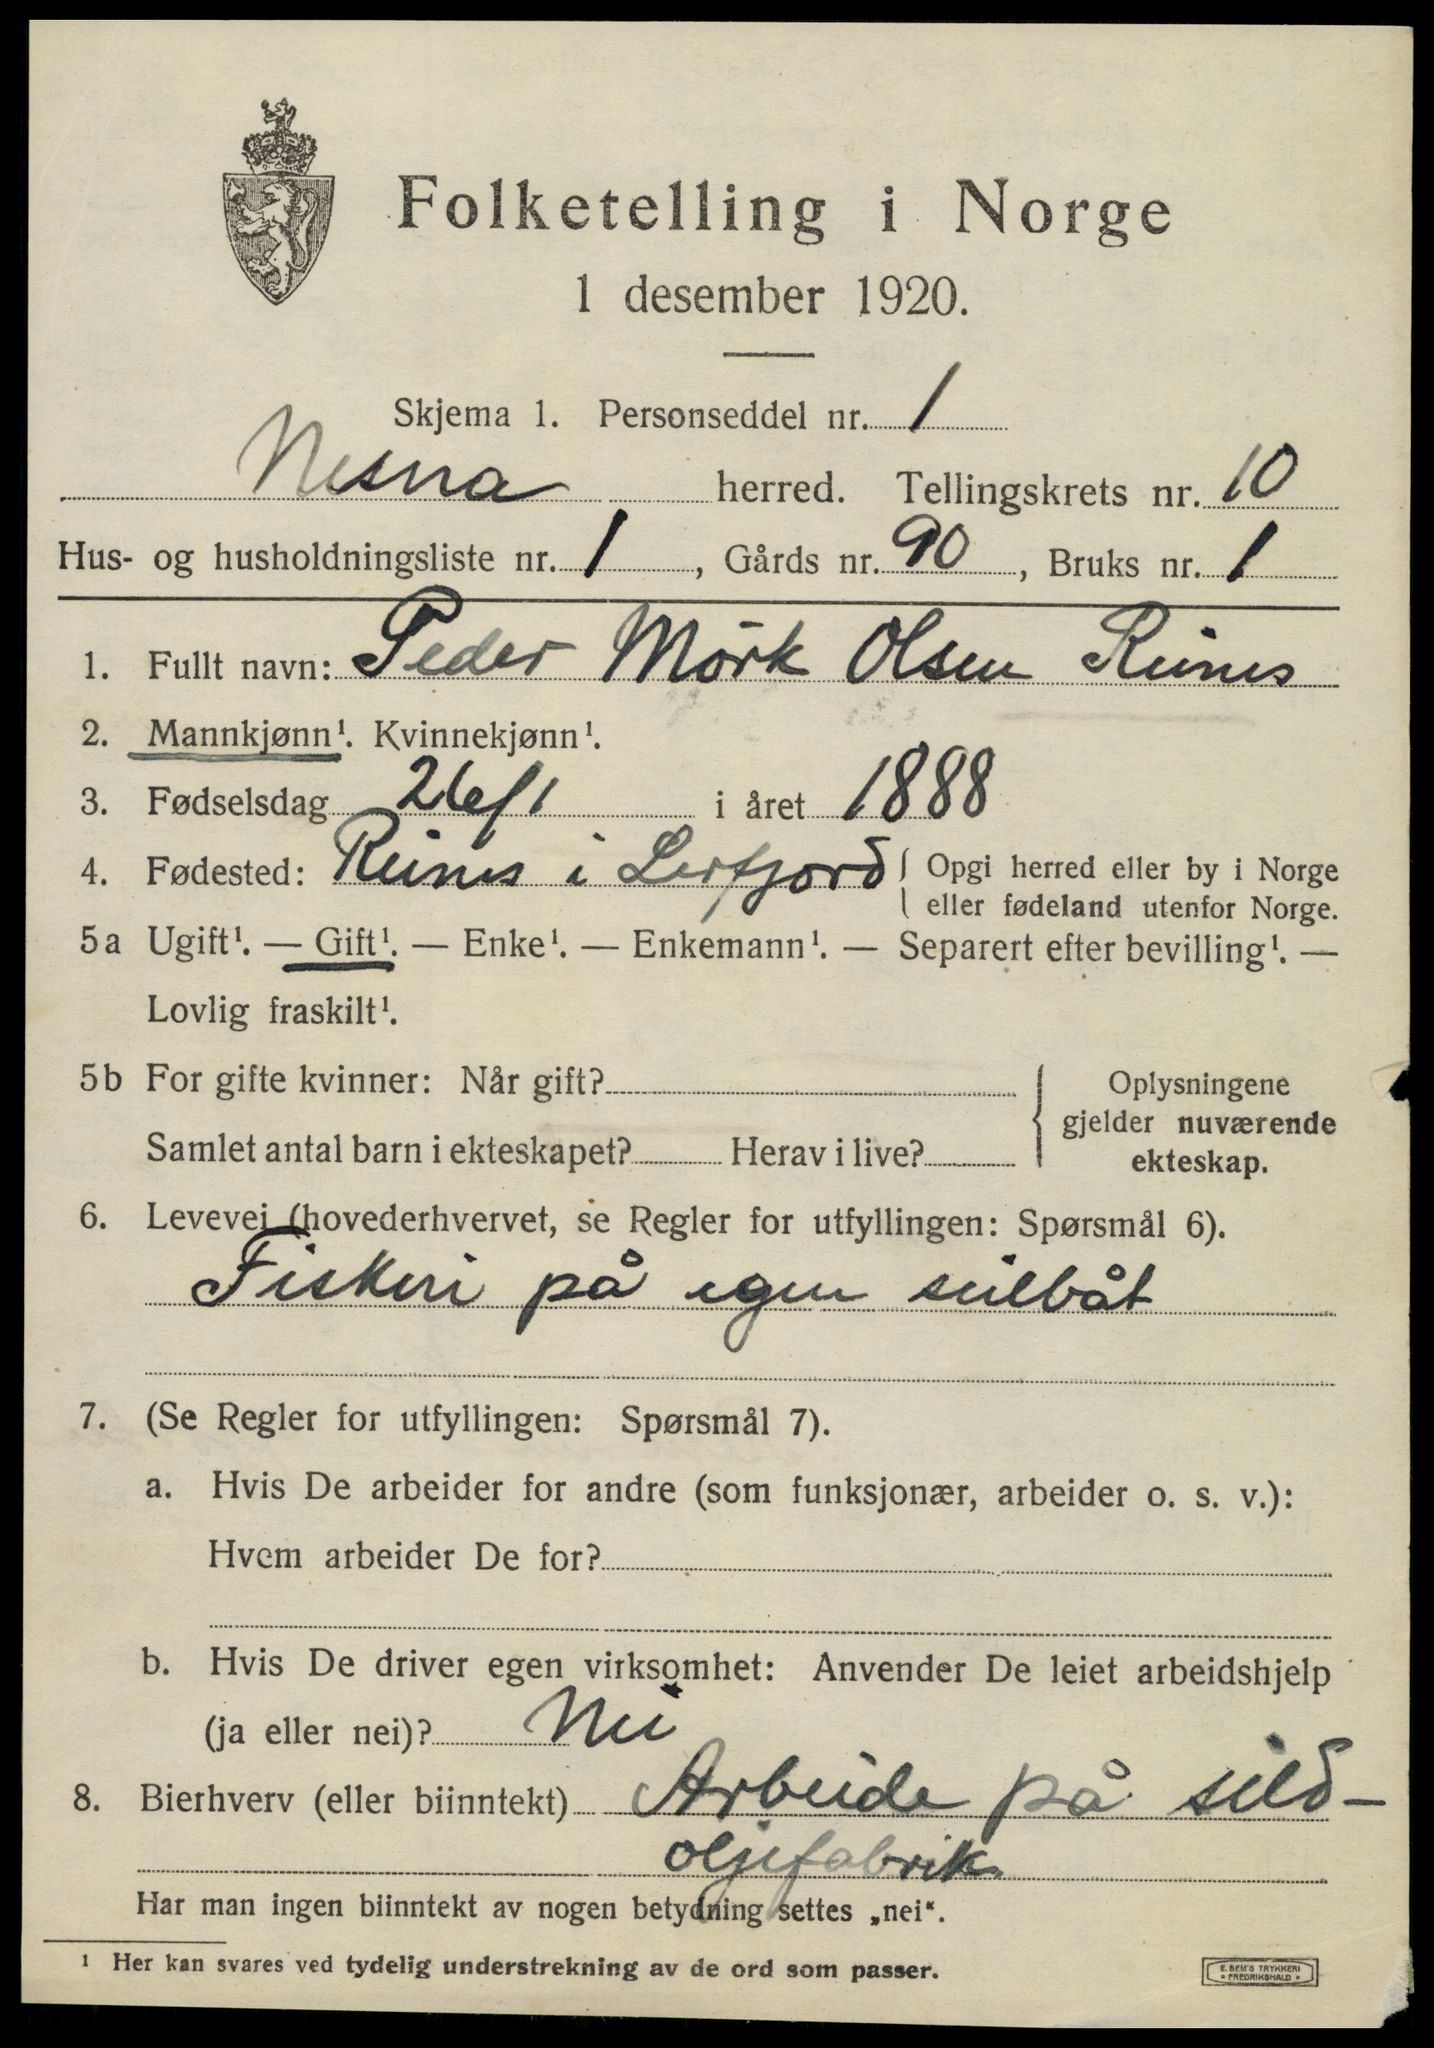 Folketelling i Norge
1 desember 1920.
Skjema 1. Personseddel nr. 1
Nesna herred. Tellingskrets nr. 10
Hus- og husholdningsliste nr. 1, Gårds nr. 90, Bruks nr. 1
1. Fullt navn: Peder Mörk Olsen Reines
2. Mannkjønn¹. Kvinnekjønn¹.
3. Fødselsdag 26/1 i året 1888
4. Fødested: Reines i Lerfjord { Opgi herred eller by i Norge
eller fødeland utenfor Norge.
5a Ugift¹. — Gift¹. — Enke¹. — Enkemann¹. — Separert efter bevilling¹. —
Lovlig fraskilt¹.
5b For gifte kvinner: Når gift?
Samlet antal barn i ekteskapet? Herav i live?
Oplysningene
gjelder nuværende
ekteskap.
6. Levevei (hovederhvervet, se Regler for utfyllingen: Spørsmål 6).
Fiskeri på egen seilbåt
7. (Se Regler for utfyllingen: Spørsmål 7).
a. Hvis De arbeider for andre (som funksjonær, arbeider o. s. v.):
Hvem arbeider De for?
b. Hvis De driver egen virksomhet: Anvender De leiet arbeidshjelp
(ja eller nei)? Nei
8. Bierhverv (eller biinntekt) Arbeide på sild-
oljefabrik.
Har man ingen biinntekt av nogen betydning settes „nei“.
¹ Her kan svares ved tydelig understrekning av de ord som passer.
E. SEM'S TRYKKERI
• FREDRIKSHALD •